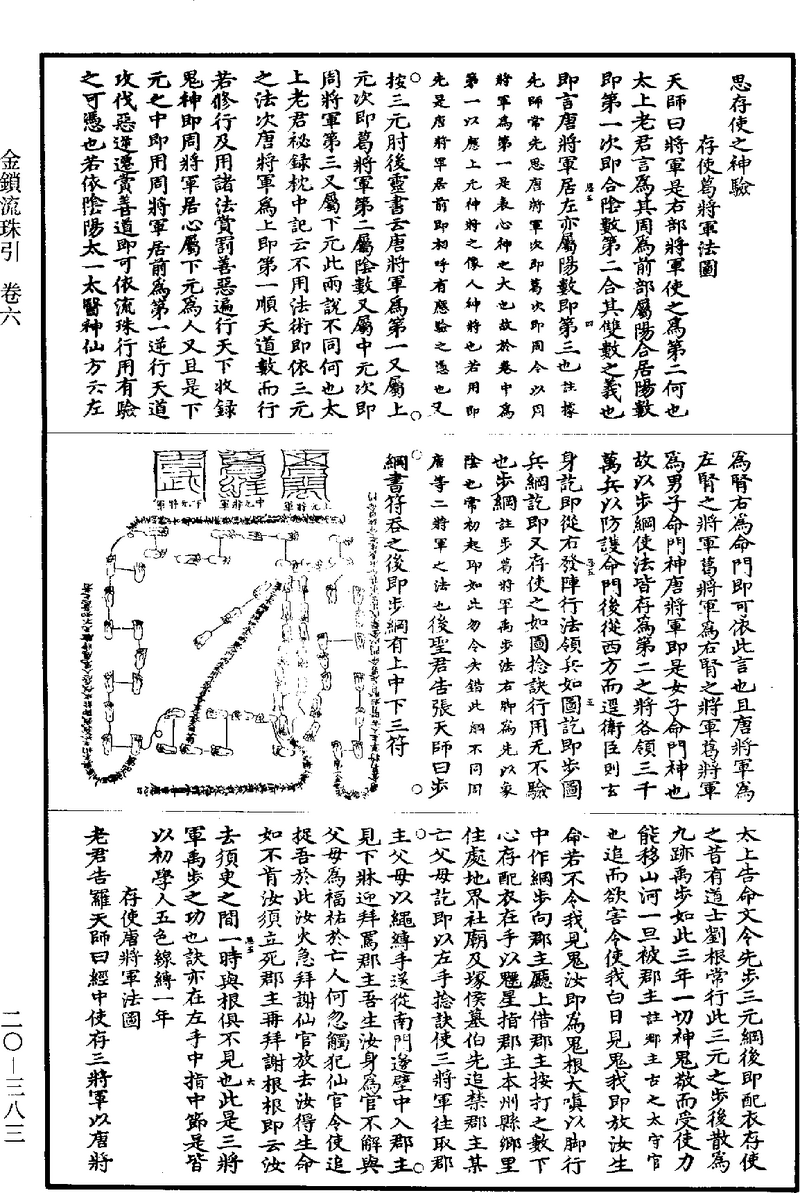 思存使之神驗
存使葛將軍法圖
天師曰將軍是右部將軍使之為第二何也
太上老君言為其周為前部屬陽合居陽數
即第一次即合陰數第二合其雙數之義也
即言唐將軍居左亦屬陽數即第三也註據
先師常先思唐將軍次即葛次即周今以周
將軍為第一是表心神之大也故於卷中為
第一以應上元神將之像人神將也若用即
先是唐將軍居前即初呼有應驗之憑也又
按三元肘後靈書云唐將軍為第一又屬上
元次即葛將軍第二屬陰數又屬中元次即
周將軍第三又屬下元此兩說不同何也太
上老君祕錄枕中記云不用法術即依三元
之法次唐將軍為上即第一順天道數而行
若修行及用諸法賞罰善惡遍行天下收錄
鬼神即周將軍居心屬下元為人又且是下
元之中即用周將軍居前為第一逆行天道
攻伐惡逆遷賞善道即可依流珠行用有驗
之可憑也若依陰陽太一太醫神仙方云左
為腎右為命門即可依此言也且唐將軍為
左腎之將軍葛將軍為右腎之將軍葛將軍
為男子命門神唐將軍即是女子命門神也
故以步綱使法皆存為第二之將各領三千
萬兵以防護命門後從西方而還衛臣則玄
身訖即從右發陣行法領兵如圖訖即步圖
兵綱訖即又存使之如圖捻訣行用无不驗
也步綱註步葛將軍禹步法右腳為先以象
陰也常初起即如此勿令失錯此綱不同周
唐等二將軍之法也後聖君告張天師曰步
綱書符吞之後即步綱有上中下三符
上元將軍
中元將軍
下元將軍
太上告命文令先步三元綱後即配衣存使
之昔有道士劉根常行此三元之步後散為
九跡禹步如此三年一切神鬼敬而受使力
能移山河一旦被郡主註郡主古之太守官
也追而欲害令使我白日見鬼我即放汝生
命若不令我見鬼汝即為鬼根大嗔以腳行
中作綱步向郡主廳上借郡主按打之數下
心存配衣在手以魁星指郡主本州縣鄉里
住處地界社廟及塚侯墓伯先追禁郡主某
亡父母訖即以左手捻訣使三將軍往取郡
主父母以繩縛手送從南門邊壁中入郡主
見下牀迎拜罵郡主吾生汝身為官不解與
父母為福祐於亡人何忽觸犯仙官令使追
捉吾於此汝火急拜謝仙官放去汝得生命
如不肯汝須立死郡主再拜謝根根即云汝
去須臾之間一時與根俱不見也此是三將
軍禹步之功也訣亦在左手中指中節是皆
以初學人五色線縛一年
存使唐將軍法圖
老君告羅天師曰經中使存三將軍以唐將
金鎖流珠引 卷六
二〇—三八三